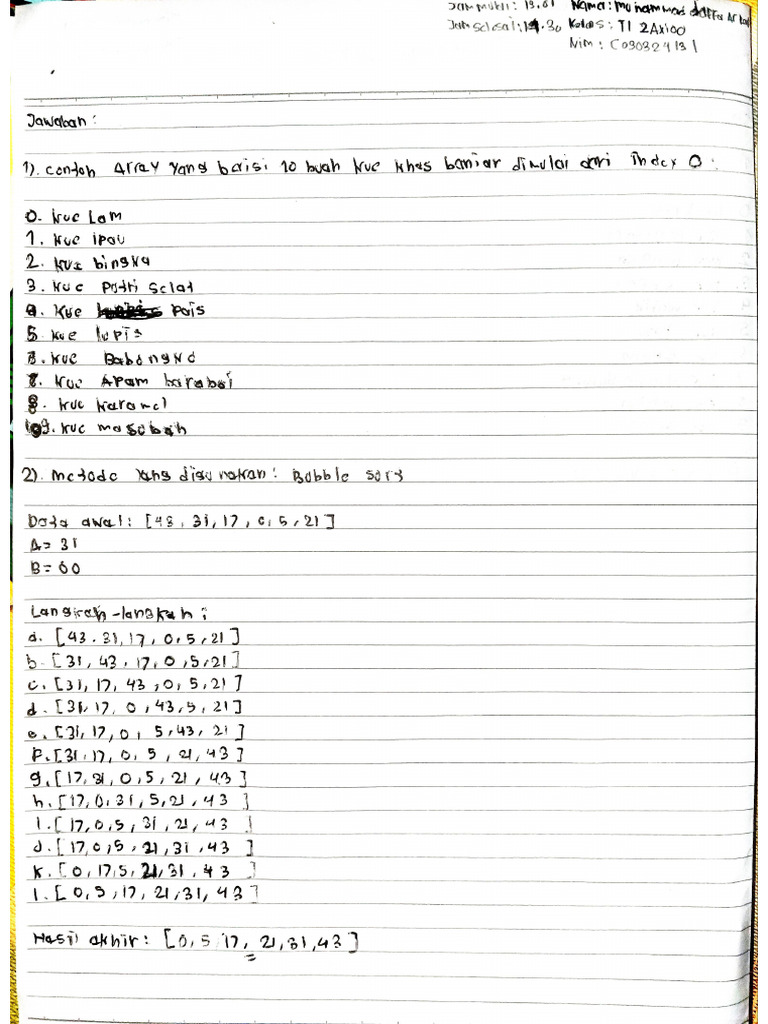 Jam mulai : 13.01 Nama : Muhammad daffa Ar
Jam selesai : 14.30 Kelas : TI 2Axioo
Nim : C030324131
Jawaban :
1). contoh Array yang berisi 10 buah kue khas banjar dimulai dari index 0 :
0. kue Lam
1. kue ipau
2. kue bingka
3. kue putri selat
4. kue pais
5. kue lupis
6. kue Babongko
7. kue Apam barabai
8. kue karamel
9. kue masubah
2). metode yang digunakan : Bubble sort
Data awal : [43, 31, 17, 0, 5, 21]
A = 31
B = 60
Langkah-langkah :
a. [43, 31, 17, 0, 5, 21]
b. [31, 43, 17, 0, 5, 21]
c. [31, 17, 43, 0, 5, 21]
d. [31, 17, 0, 43, 5, 21]
e. [31, 17, 0, 5, 43, 21]
f. [31, 17, 0, 5, 21, 43]
g. [17, 31, 0, 5, 21, 43]
h. [17, 0, 31, 5, 21, 43]
i. [17, 0, 5, 31, 21, 43]
j. [17, 0, 5, 21, 31, 43]
k. [0, 17, 5, 21, 31, 43]
l. [0, 5, 17, 21, 31, 43]
Hasil akhir : [0, 5, 17, 21, 31, 43]